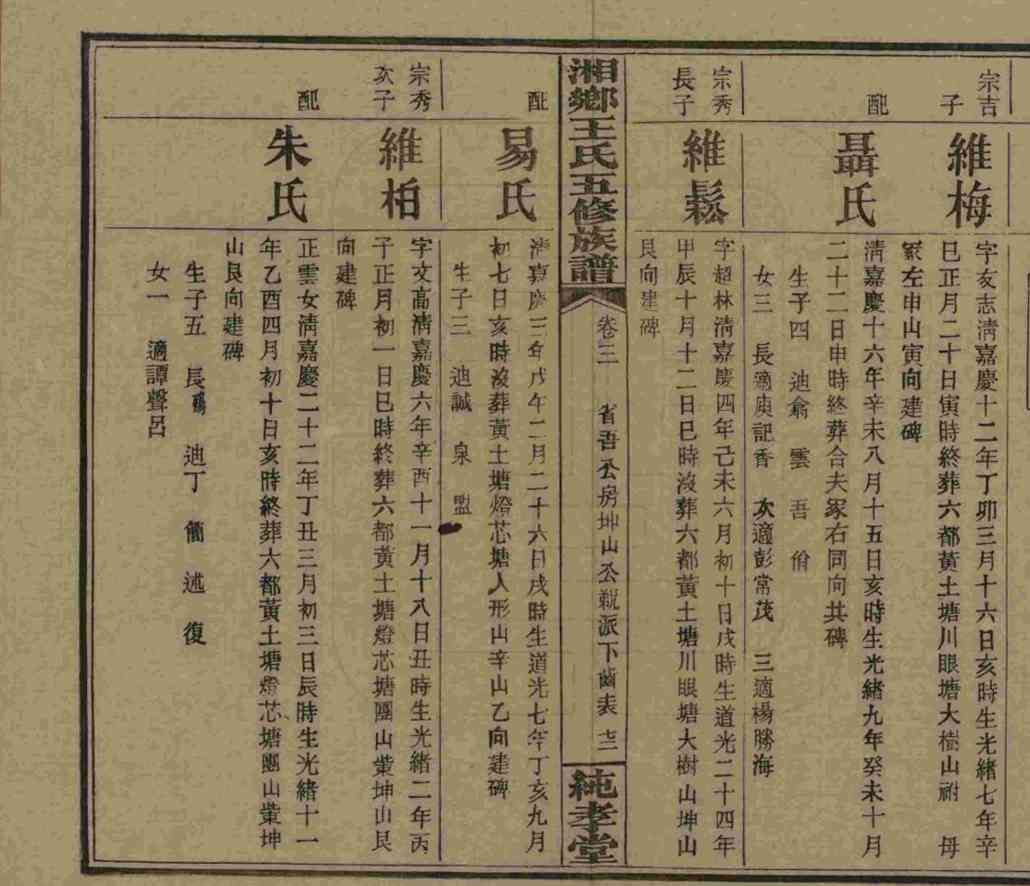 宗吉
子
維梅
字友志淸嘉慶十二年丁卯三月十六日亥時生光緒七年辛
巳正月二十日寅時終葬六都黃土塘川眼塘大樹山祔母
冢左申山寅向建碑
配
聶氏
淸嘉慶十六年辛未八月十五日亥時生光緒九年癸未十月
二十二日申時終葬合夫冢右同向共碑
生子四 迪翕 雲 吾 佾
女三 長適庾記香 次適彭常茂 三適楊勝海
宗秀
長子
維鬆
字超林淸嘉慶四年己未六月初十日戌時生道光二十四年
甲辰十月十二日巳時沒葬六都黃土塘川眼塘大樹山坤山
艮向建碑
湘鄉王氏五修族譜
卷三 省吾公房坤山公毓派下齒表 十三
純孝堂
配
易氏
淸嘉慶三年戊午二月二十六日戌時生道光七年丁亥九月
初七日亥時沒葬黃土塘燈芯塘人形山辛山乙向建碑
生子三 迪誠 泉 盟
宗秀
次子
維柏
字文高淸嘉慶六年辛酉十一月十八日丑時生光緒二年丙
子正月初一日巳時終葬六都黃土塘燈芯塘團山業坤山艮
向建碑
配
朱氏
正雲女淸嘉慶二十二年丁丑三月初三日辰時生光緒十一
年乙酉四月初十日亥時終葬六都黃土塘燈芯塘團山業坤
山艮向建碑
生子五 長殤 迪丁 簡 述 復
女一 適譚聲呂